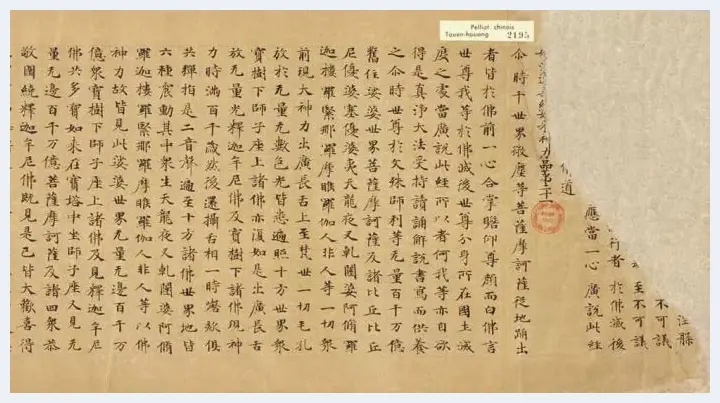 Pelliot chinois
Touen-houang 2195
不可議
不可議
行者 於佛滅後
應當一心 廣說此經
佛道
神力品第二十
尒時千世界微塵等菩薩摩訶薩從地踊出
者皆於佛前一心合掌瞻仰尊顏而白佛言
世尊我等於佛滅後世尊分身所在國土滅
度之處當廣說此經所以者何我等亦自欲
得是真淨大法受持讀誦解說書寫而供養
之尒時世尊於文殊師利等无量百千万億
舊住娑婆世界菩薩摩訶薩及諸比丘比丘
尼優婆塞優婆夷天龍夜叉乹闥婆阿脩羅
迦樓羅緊那羅摩睺羅伽人非人等一切衆
前現大神力出廣長舌上至梵世一切毛孔
放於无量无數色光皆悉遍照十方世界衆
寶樹下師子座上諸佛亦復如是出廣長舌
放无量光釋迦牟尼佛及寶樹下諸佛現神
力時滿百千歲然後還攝舌相一時謦欬俱
共彈指是二音聲遍至十方諸佛世界地皆
六種震動其中衆生天龍夜叉乹闥婆阿脩
羅迦樓羅緊那羅摩睺羅伽人非人等以佛
神力故皆見此娑婆世界无量无邊百千万
億衆寶樹下師子座上諸佛及見釋迦牟尼
佛共多寶如來在寶塔中坐師子座又見无
量无邊百千万億菩薩摩訶薩及諸四衆恭
敬圍繞釋迦牟尼佛既見是已皆大歡喜得